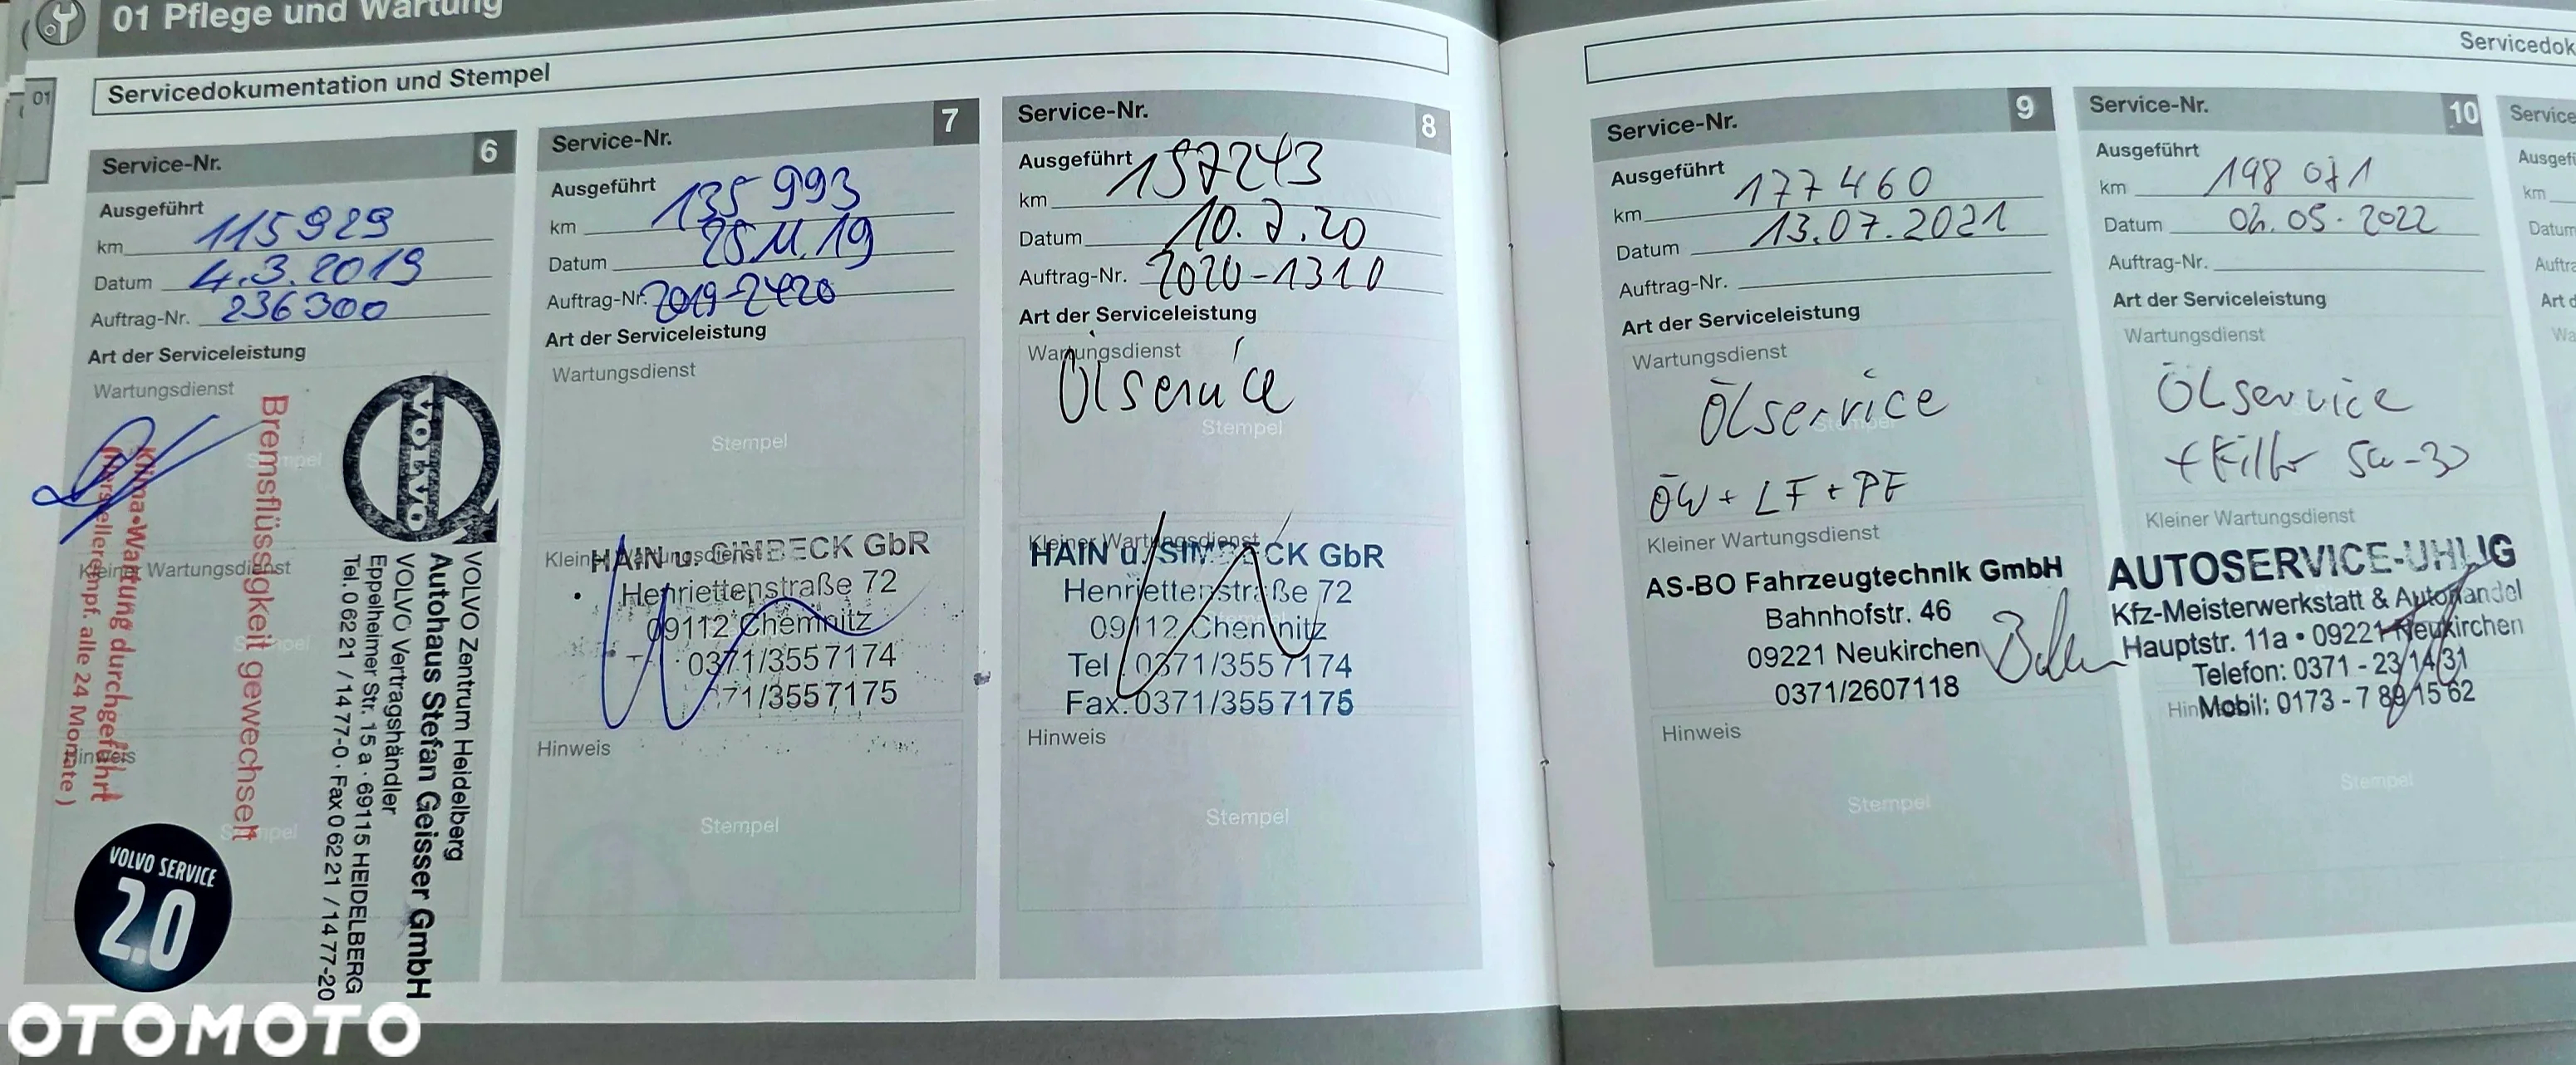 01 Pflege und Wartung
01
Servicedokumentation und Stempel
Service-Nr. 6
Ausgeführt
km 115929
Datum 4.3.2019
Auftrag-Nr. 236300
Art der Serviceleistung
Wartungsdienst
Stempel
Kleiner Wartungsdienst
Stempel
Hinweis
Stempel
Klima•Wartung durchgeführt
(Herstellerempf. alle 24 Monate)
Bremsflüssigkeit gewechselt
VOLVO
VOLVO Zentrum Heidelberg
Autohaus Stefan Geisser GmbH
VOLVO Vertragshändler
Eppelheimer Str. 15 a · 69115 HEIDELBERG
Tel. 0 62 21 / 14 77-0 · Fax 0 62 21 / 14 77-20
VOLVO SERVICE
2.0
Service-Nr. 7
Ausgeführt
km 135 993
Datum 25.11.19
Auftrag-Nr. 2019-2420
Art der Serviceleistung
Wartungsdienst
Stempel
Kleiner Wartungsdienst
HAIN u. SIMBECK GbR
Henriettenstraße 72
09112 Chemnitz
0371/355 7174
71/355 7175
Hinweis
Stempel
Service-Nr. 8
Ausgeführt
km 157243
Datum 10.7.20
Auftrag-Nr. 2020-1310
Art der Serviceleistung
Wartungsdienst
Ölservice
Stempel
Kleiner Wartungsdienst
HAIN u. SIMBECK GbR
Henriettenstraße 72
09112 Chemnitz
Tel. 0371/355 7174
Fax. 0371/355 7175
Hinweis
Stempel
Servicedok
Service-Nr. 9
Ausgeführt
km 177460
Datum 13.07.2021
Auftrag-Nr.
Art der Serviceleistung
Wartungsdienst
Ölservice
Stempel
ÖW + LF + PF
Kleiner Wartungsdienst
AS-BO Fahrzeugtechnik GmbH
Bahnhofstr. 46
09221 Neukirchen
0371/2607118
Hinweis
Stempel
Service-Nr. 10
Ausgeführt
km 198 071
Datum 04.05.2022
Auftrag-Nr.
Art der Serviceleistung
Wartungsdienst
Ölservice
+ Filter 5w-30
Kleiner Wartungsdienst
AUTOSERVICE-UHLIG
Kfz-Meisterwerkstatt & Autohandel
Hauptstr. 11a • 09221 Neukirchen
Telefon: 0371 - 23 14 31
Mobil: 0173 - 7 89 15 62
Stempel
Service
Ausgefü
km
Datum
Auftra
Art d
Wa
OTOMOTO